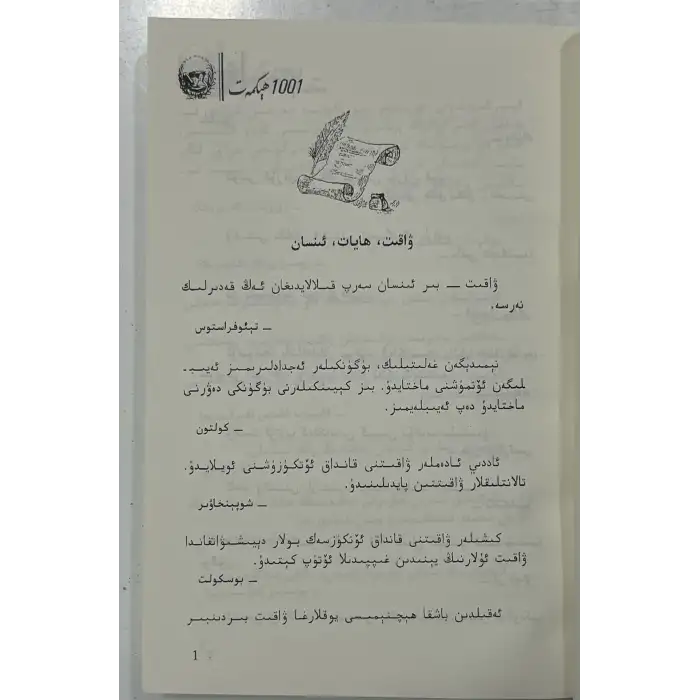 1001 ھېكمەت
ۋاقىت، ھايات، ئىنسان
ۋاقىت — بىر ئىنسان سەرپ قىلالايدىغان ئەڭ قەدىرلىك
نەرسە.
— تېئوفراستوس
نېمىدېگەن غەلىتىلىك، بۈگۈنكىلەر ئەجدادلىرىمىز ئەيىب-
لىگەن ئۆتمۈشنى ماختايدۇ. بىز كېيىنكىلەرنى بۈگۈنكى دەۋرنى
ماختايدۇ دەپ ئەيىبلەيمىز.
— كولتون
ئاددىي ئادەملەر ۋاقىتنى قانداق ئۆتكۈزۈشنى ئويلايدۇ.
تالانتلىقلار ۋاقىتتىن پايدىلىنىدۇ.
— شوپېنخاۋېر
كىشىلەر ۋاقىتنى قانداق ئۆتكۈزسەك بولار دېيىشىۋاتقاندا
ۋاقىت ئۇلارنىڭ يېنىدىن غىپپىدىلا ئۆتۈپ كېتىدۇ.
— بوسكولت
ئەقىلدىن باشقا ھېچنېمىسى يوقلارغا ۋاقىت بىردىنبىر
1